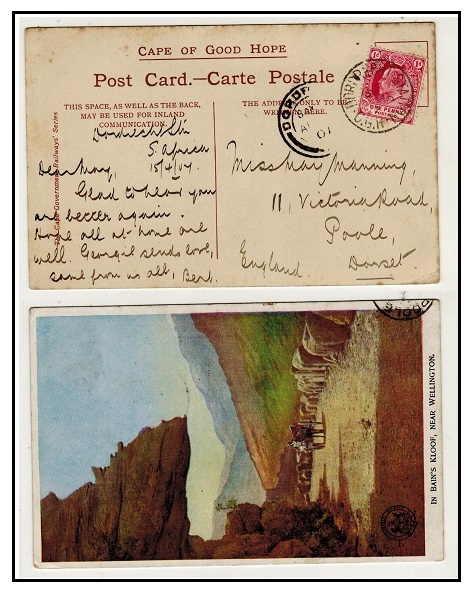 CAPE OF GOOD HOPE
Post Card.—Carte Postale
THIS SPACE, AS WELL AS THE BACK,
MAY BE USED FOR INLAND
COMMUNICATION.
THE ADDRESS ONLY TO BE
WRITTEN HERE.
The Cape Government Railways' Series
DORDR
POSTAGE
ONE PENNY
S. Africa
15/4/07
Dear May,
Glad to hear you
are better again.
Hope all at home are
well. Georgie sends love,
same from us all, Bert.
Miss May Manning,
11, Victoria Road,
Poole,
Dorset.
England.
POOLE
IN BAIN'S KLOOF, NEAR WELLINGTON.